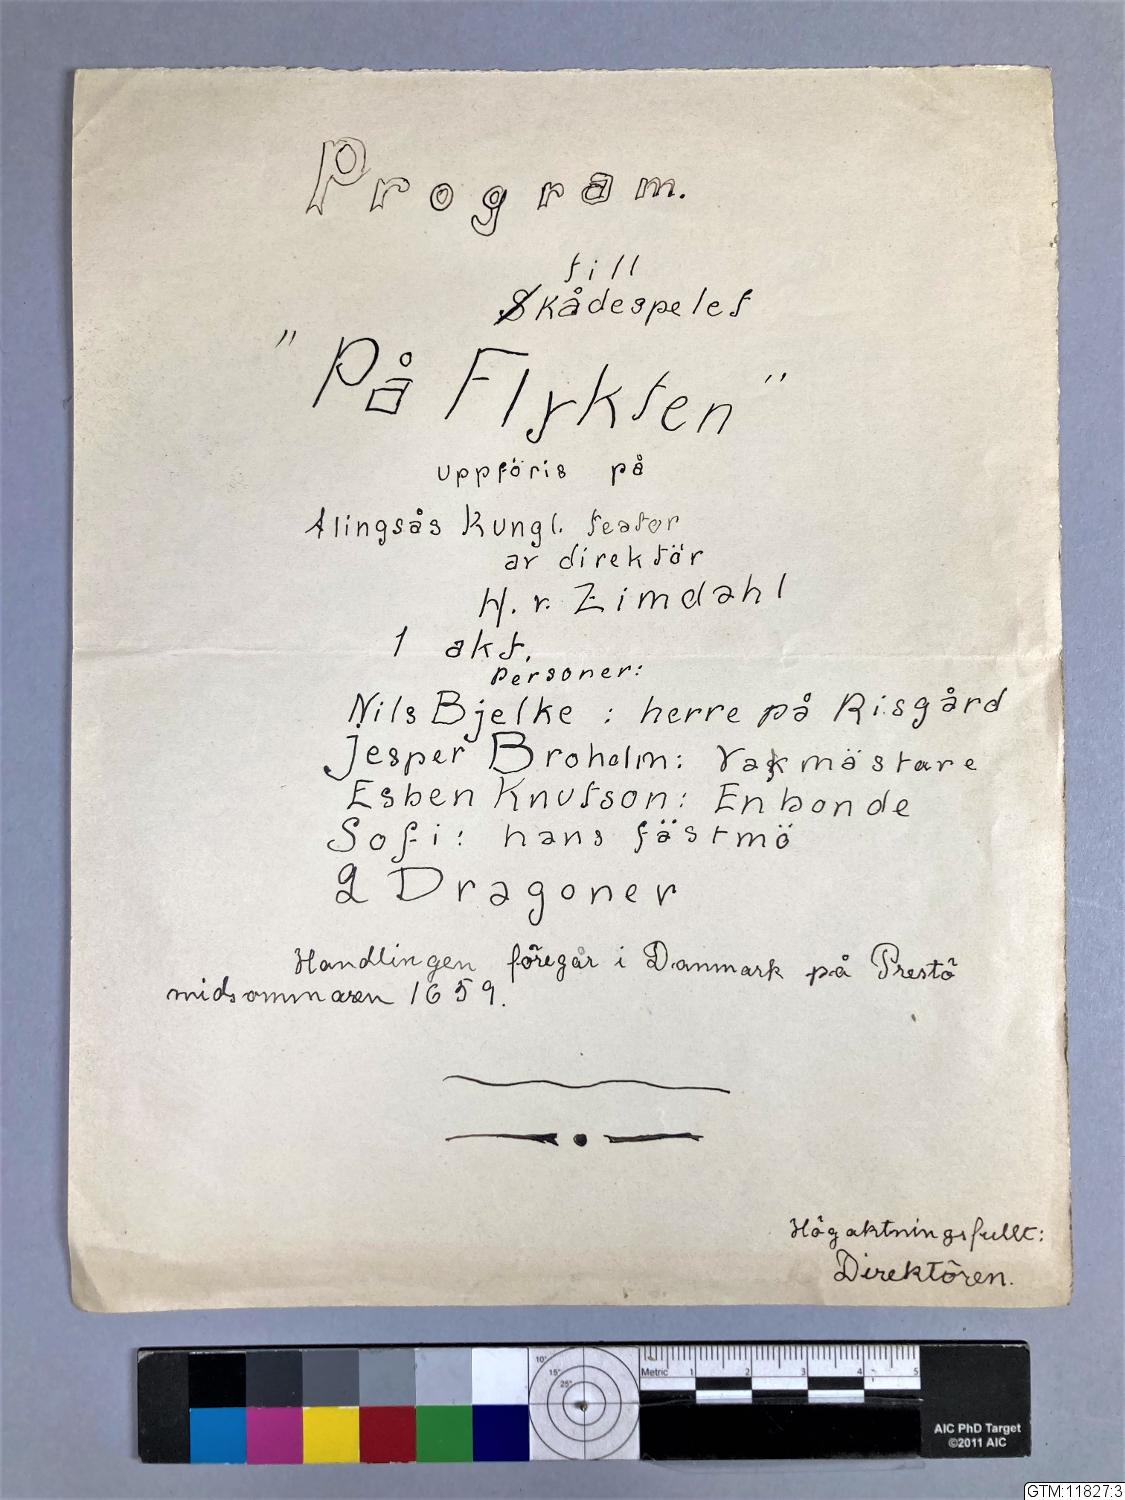 Program.
till
Skådespelet
"På Flykten"
uppföris på
Alingsås Kungl. teater
av direktör
H. v. Zimdahl
1 akt.
Personer:
Nils Bjelke : herre på Risgård
Jesper Broholm: Vakmästare
Esben Knutson: En bonde
Sofi: hans fästmö
2 Dragoner
Handlingen föregår i Danmark på Prestö
midsommaren 1659.
Högaktningsfullt:
Direktören.
10°
15°
25°
Metric 1 2 3 4 5
AIC PhD Target
©2011 AIC
GTM:11827:3